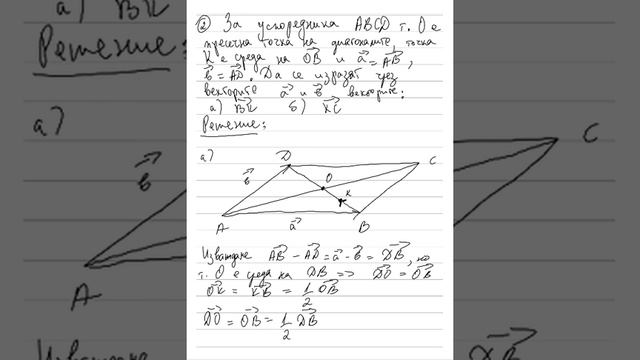 ② За успоредника ABCD т. O е
пресечна точка на диагоналите, точка
K е среда на OB и a⃗ = AB⃗,
b⃗ = AD⃗. Да се изразят чрез
векторите a⃗ и b⃗ векторите:
а) BK⃗ б) KC⃗
Решение:
а)
D
C
b⃗
O
K
A
a⃗
B
Изваждаме AB⃗ - AD⃗ = a⃗ - b⃗ = DB⃗, но
т. O е среда на DB => DO⃗ = OB⃗
OK⃗ = KB⃗ = 1/2 OB⃗
DO⃗ = OB⃗ = 1/2 DB⃗